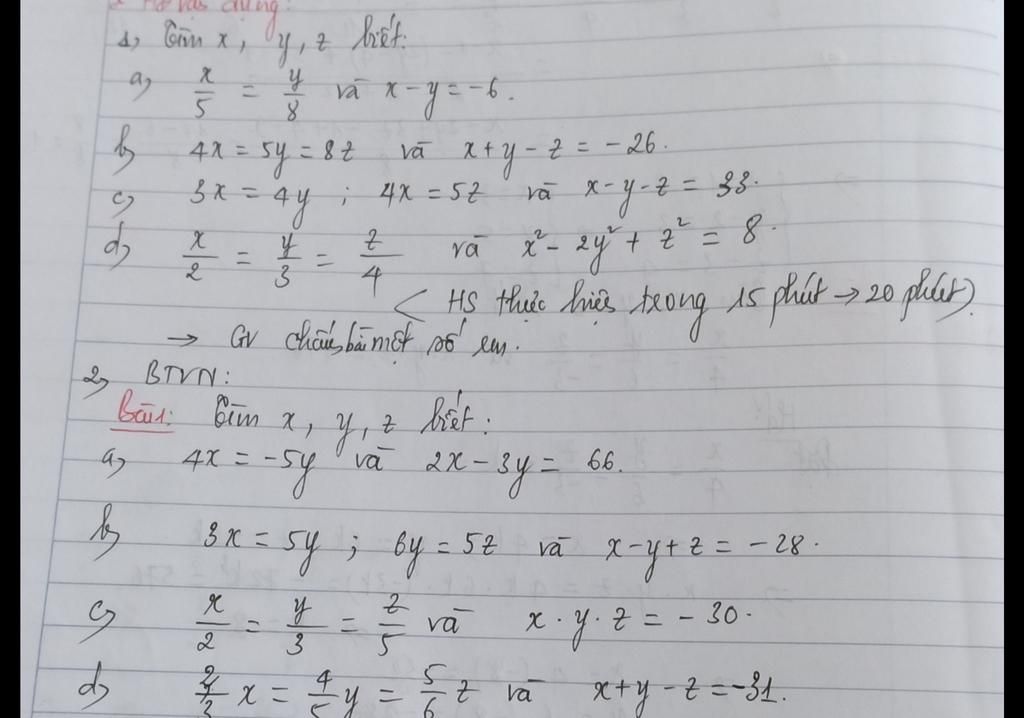 dụng:
1, Tìm x, y, z biết:
a, x/5 = y/8 và x - y = -6.
b, 4x = 5y = 8z và x + y - z = -26.
c, 3x = 4y ; 4x = 5z và x - y - z = 33.
d, x/2 = y/3 = z/4 và x² - 2y² + z² = 8.
< HS thực hiện trong 15 phút → 20 phút).
→ GV chấm bài một số em.
2, BTVN:
Bài 1: Tìm x, y, z biết:
a, 4x = -5y và 2x - 3y = 66.
b, 3x = 5y ; 6y = 5z và x - y + z = -28.
c, x/2 = y/3 = z/5 và x . y . z = -30.
d, 2/3 x = 4/5 y = 5/6 z và x + y - z = -31.